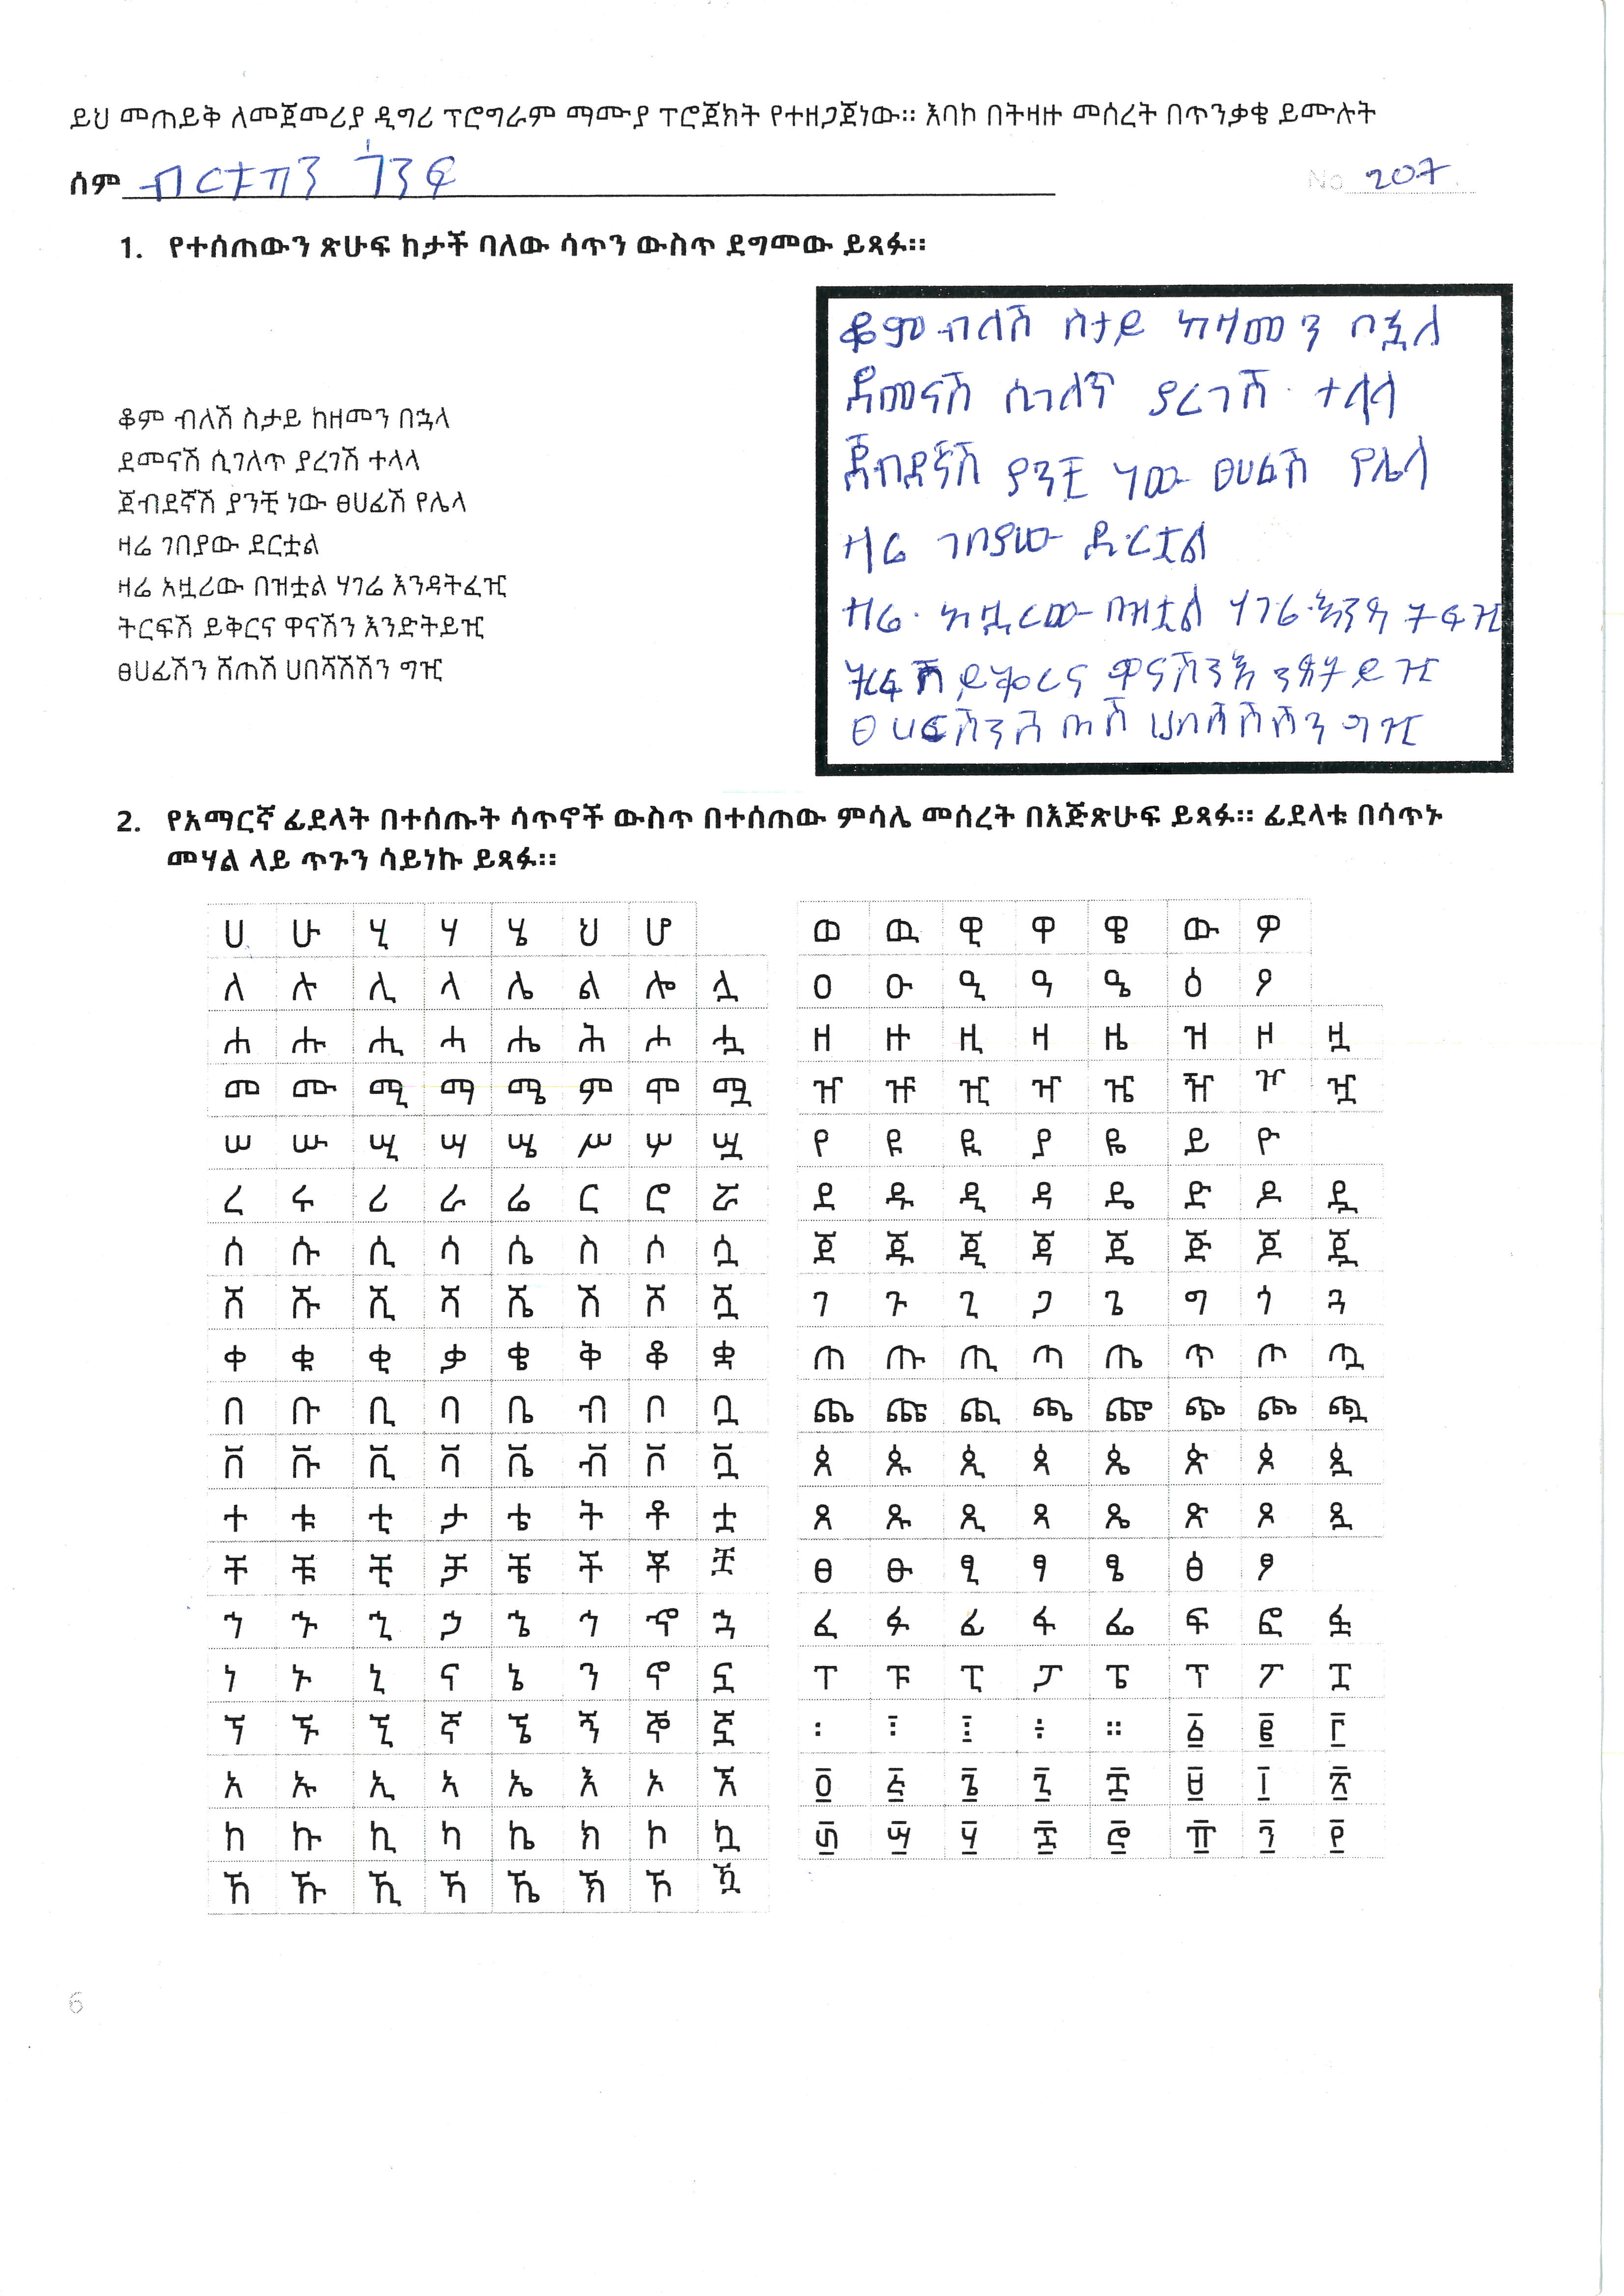 ይህ መጠይቅ ለመጀመሪያ ዲግሪ ፕሮግራም ማሙያ ፕሮጀክት የተዘጋጀነው። እባኮ በትዛዙ መሰረት በጥንቃቄ ይሙሉት
ሰም
No 207
1. የተሰጠውን ጽሁፍ ከታች ባለው ሳጥን ውስጥ ደግመው ይጻፉ።
ቆም ብለሽ ስታይ ከዘመን በኋላ
ደመናሽ ሲገለጥ ያረገሽ ተላላ
ጀብደኛሽ ያንቺ ነው ፀሀፊሽ የሌላ
ዛሬ ገበያው ደርቷል
ዛሬ አዟሪው በዝቷል ሃገሬ እንዳትፈዢ
ትርፍሽ ይቅርና ዋናሽን እንድትይዢ
ፀሀፊሽን ሸጠሽ ሀበሻሽሽን ግዢ
ቆም ብለሽ ስታይ ከዛመን ቦኗለ
ደመናሽ ሲገለጥ ያረገሽ ተላላ
ጀብደኛሽ ያንቺ ነው ፀሀፊሽ የሌላ
ዛሬ ገበያው ደርቷል
ዛሬ አዟረው በዝቷል ሃገሬ እንዳትፋዢ
ትርፍሽ ይቅርና ዋናሽን እንድትይዢ
ፀሀፍሽን ሸጠሽ ሀበሻሽሽን ግዢ
2. የአማርኛ ፊደላት በተሰጡት ሳጥኖች ውስጥ በተሰጠው ምሳሌ መሰረት በእጅጽሁፍ ይጻፉ። ፊደላቱ በሳጥኑ
መሃል ላይ ጥጉን ሳይነኩ ይጻፉ።
ሀ ሁ ሂ ሃ ሄ ህ ሆ
ለ ሉ ሊ ላ ሌ ል ሎ ሏ
ሐ ሑ ሒ ሓ ሔ ሕ ሖ ሗ
መ ሙ ሚ ማ ሜ ም ሞ ሟ
ሠ ሡ ሢ ሣ ሤ ሥ ሦ ሧ
ረ ሩ ሪ ራ ሬ ር ሮ ሯ
ሰ ሱ ሲ ሳ ሴ ስ ሶ ሷ
ሸ ሹ ሺ ሻ ሼ ሽ ሾ ሿ
ቀ ቁ ቂ ቃ ቄ ቅ ቆ ቋ
በ ቡ ቢ ባ ቤ ብ ቦ ቧ
ቨ ቩ ቪ ቫ ቬ ቭ ቮ ቯ
ተ ቱ ቲ ታ ቴ ት ቶ ቷ
ቸ ቹ ቺ ቻ ቼ ች ቾ ቿ
ኀ ኁ ኂ ኃ ኄ ኅ ኆ ኋ
ነ ኑ ኒ ና ኔ ን ኖ ኗ
ኘ ኙ ኚ ኛ ኜ ኝ ኞ ኟ
አ ኡ ኢ ኣ ኤ እ ኦ ኧ
ከ ኩ ኪ ካ ኬ ክ ኮ ኳ
ኸ ኹ ኺ ኻ ኼ ኽ ኾ ዃ
ወ ዉ ዊ ዋ ዌ ው ዎ
ዐ ዑ ዒ ዓ ዔ ዕ ዖ
ዘ ዙ ዚ ዛ ዜ ዝ ዞ ዟ
ዠ ዡ ዢ ዣ ዤ ዥ ዦ ዧ
የ ዩ ዪ ያ ዬ ይ ዮ
ደ ዱ ዲ ዳ ዴ ድ ዶ ዷ
ጀ ጁ ጂ ጃ ጄ ጅ ጆ ጇ
ገ ጉ ጊ ጋ ጌ ግ ጎ ጓ
ጠ ጡ ጢ ጣ ጤ ጥ ጦ ጧ
ጨ ጩ ጪ ጫ ጬ ጭ ጮ ጯ
ጰ ጱ ጲ ጳ ጴ ጵ ጶ ጷ
ጸ ጹ ጺ ጻ ጼ ጽ ጾ ጿ
ፀ ፁ ፂ ፃ ፄ ፅ ፆ
ፈ ፉ ፊ ፋ ፌ ፍ ፎ ፏ
ፐ ፑ ፒ ፓ ፔ ፕ ፖ ፗ
፡ ፤ ፥ ። ፩ ፪ ፫
፬ ፭ ፮ ፯ ፰ ፱ ፲ ፳
፴ ፵ ፶ ፷ ፸ ፹ ፺ ፻
6